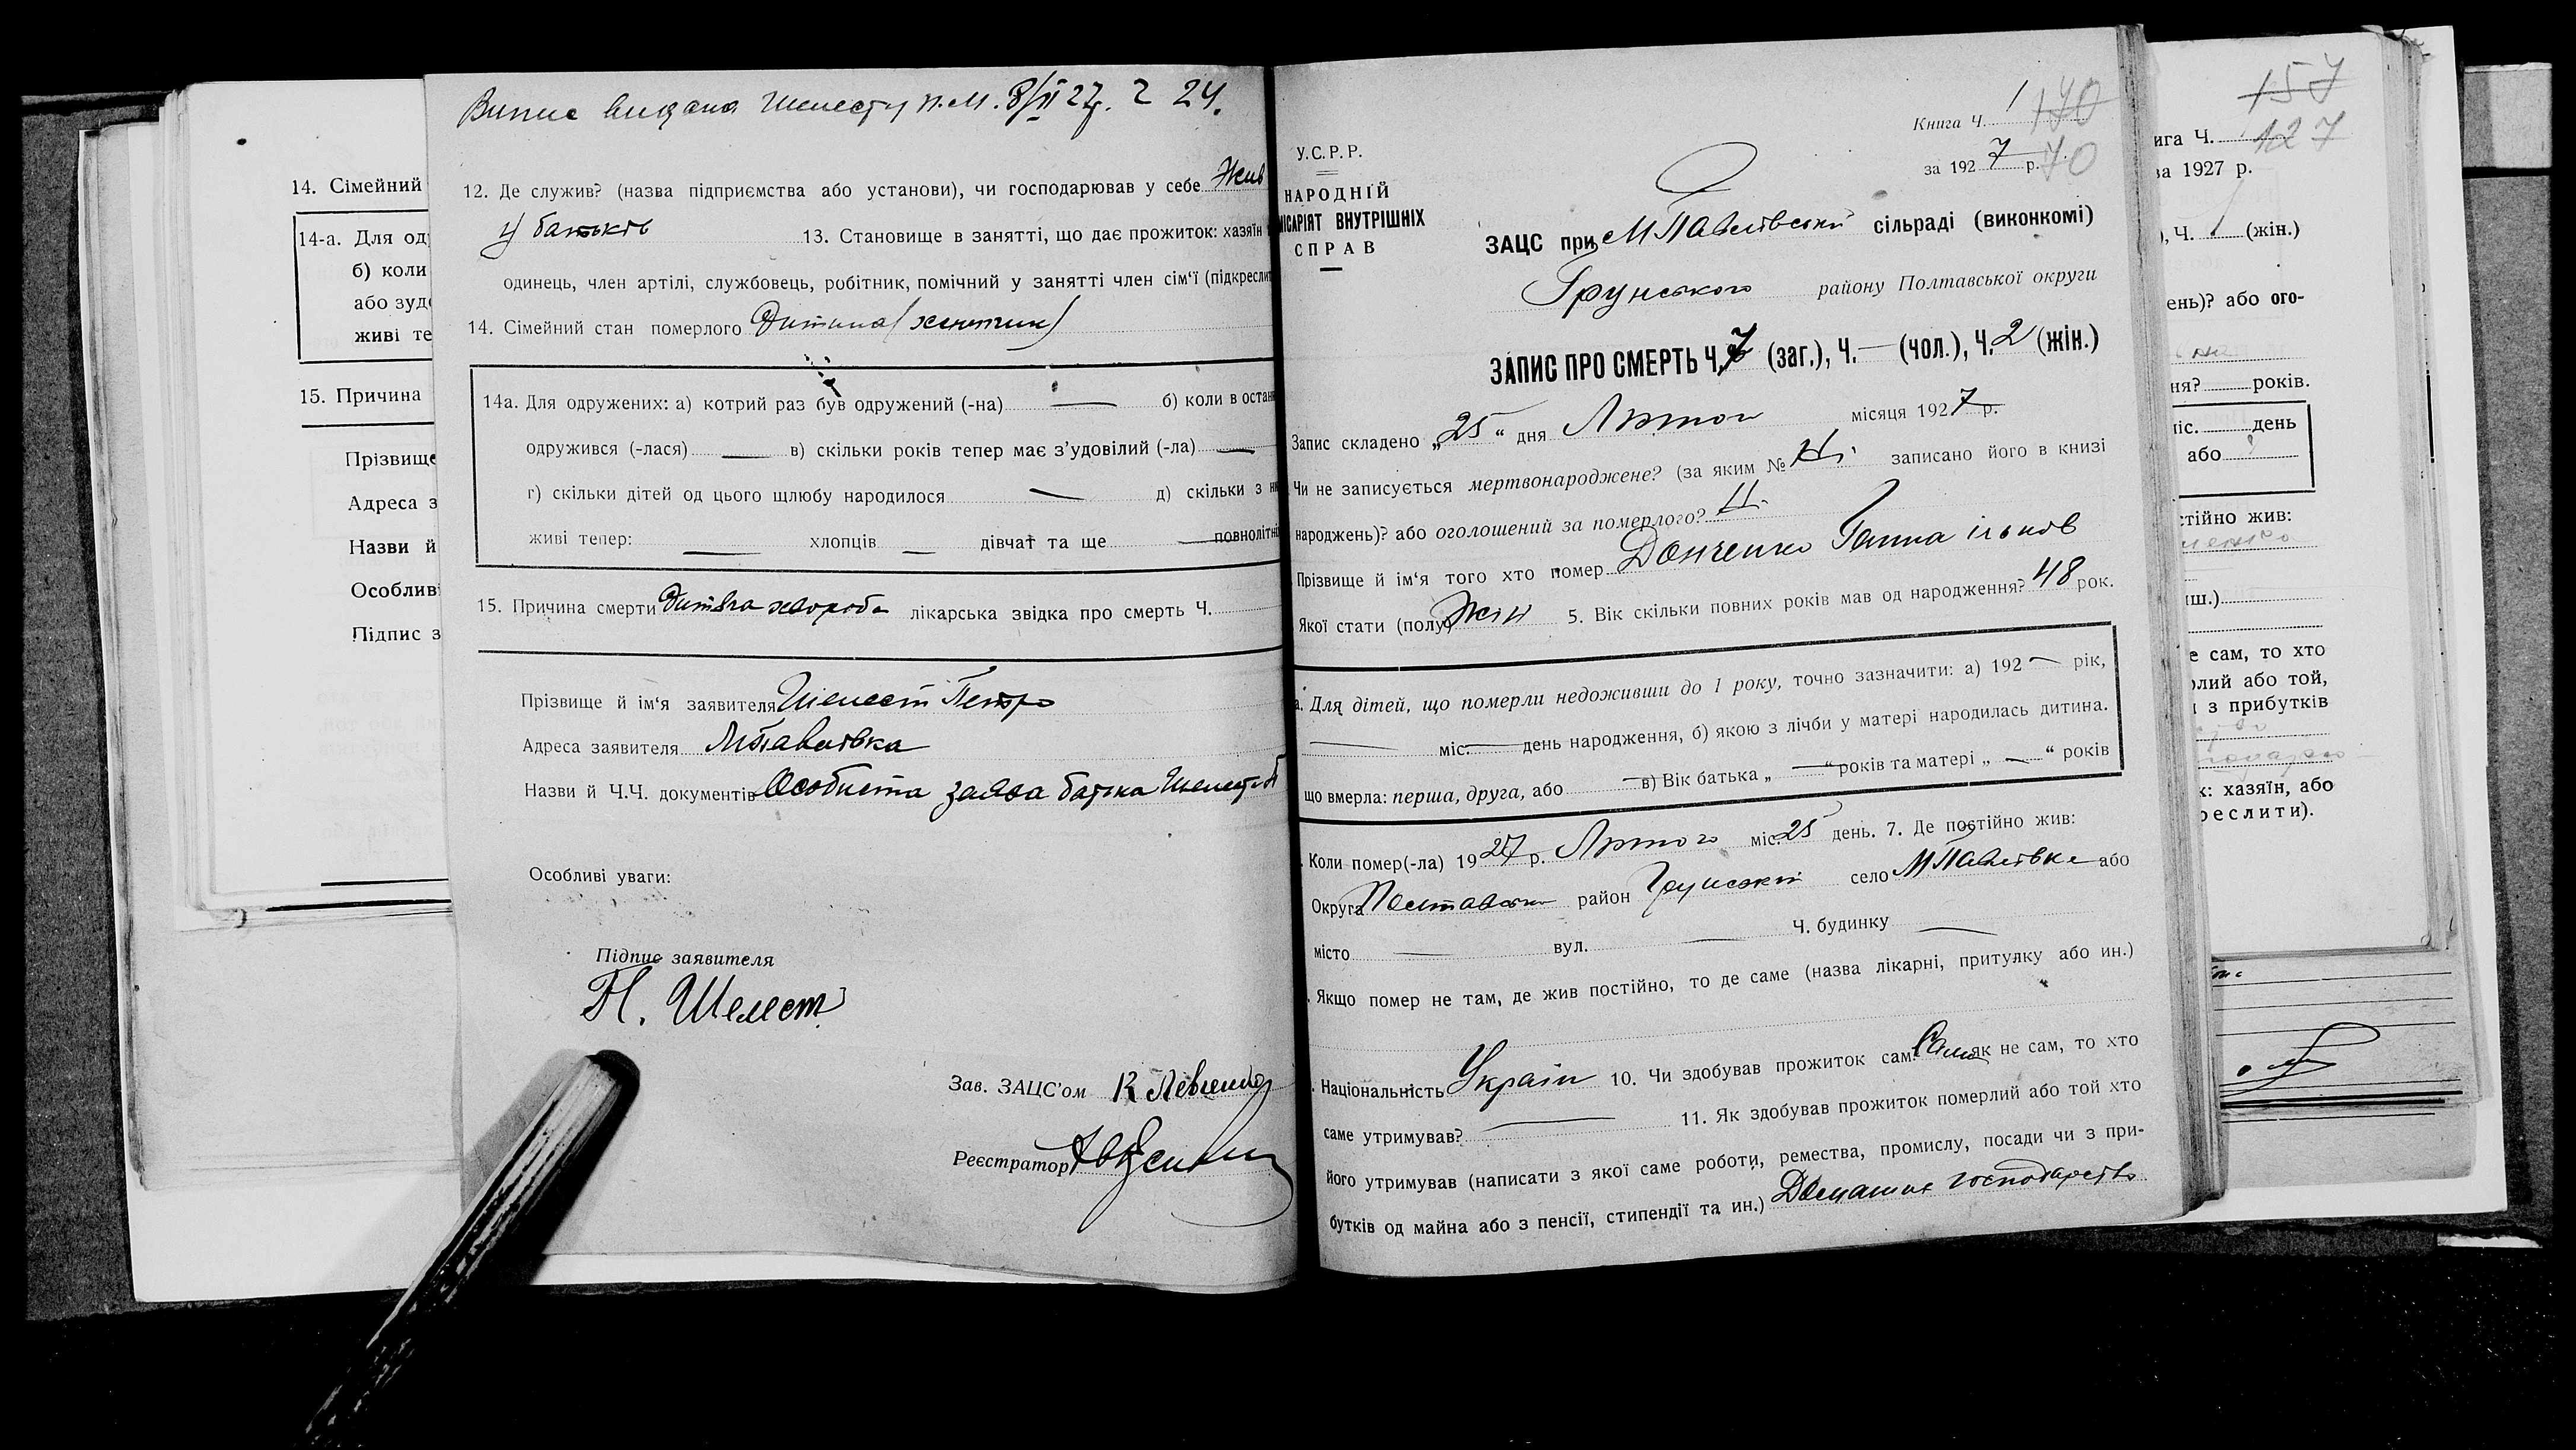 14. Сімейний
14-а. Для од
б) коли
або
живі те
15. Причина
Прізвище
Адреса з
Назви й
Особливі
Підпис з
Випис видана Шелесту П.М. 8/ІІ 27р. 2 24.
12. Де служив? (назва підприємства або установи), чи господарював у себе Жив
у батьків 13. Становище в занятті, що дає прожиток: хазяїн
одинець, член артілі, службовець, робітник, помічний у занятті член сім'ї (підкреслит
14. Сімейний стан померлого Дитина (хлопчик)
14а. Для одружених: а) котрий раз був одружений (-на) — б) коли в остан
одружився (-лася) — в) скільки років тепер має з'удовілий (-ла) —
г) скільки дітей од цього щлюбу народилося — д) скільки з
живі тепер: — хлопців — дівчат та ще — повнолітні
15. Причина смерти Дитяча хороба лікарська звідка про смерть Ч.
Прізвище й ім'я заявителя Шелест Петро
Адреса заявителя МПавлівка
Назви й Ч.Ч. документів Особиста заява батька Шелест П
Особливі уваги:
Підпис заявителя
П. Шелест
Зав. ЗАЦС'ом К Левченко
Реєстратор
Книга Ч. 1 170
У.С.Р.Р.
за 1927 р. 70
НАРОДНІЙ
ІСАРІЯТ ВНУТРІШНІХ
СПРАВ
ЗАЦС при МПавлівській сільраді (виконкомі)
Грунського району Полтавської округи
ЗАПИС ПРО СМЕРТЬ Ч. 7 (заг.), Ч. — (чол.), Ч. 2 (жін.)
Запис складено „25“ дня Лютого місяця 1927 р.
Чи не записується мертвонароджене? (за яким № Ні записано його в книзі
народжень)? або оголошений за померлого? Н
Прізвище й ім'я того хто помер Донченко Ганна Ільков
Якої стати (полу) Жін 5. Вік скільки повних років мав од народження? 48 рок.
а. Для дітей, що померли недоживши до 1 року, точно зазначити: а) 192— рік,
— міс. — день народження, б) якою з лічби у матері народилась дитина.
що вмерла: перша, друга, або — в) Вік батька „—“ років та матері „—“ років
Коли помер(-ла) 1927 р. Лютого міс. 25 день. 7. Де постійно жив:
Округа Полтавська район Грунський село МПавлівка або
місто — вул. — Ч. будинку —
Якщо помер не там, де жив постійно, то де саме (назва лікарні, притулку або ин.)
Національність Україн 10. Чи здобував прожиток сам: Сама як не сам, то хто
саме утримував? — 11. Як здобував прожиток померлий або той хто
його утримував (написати з якої саме роботи, ремества, промислу, посади чи з при-
бутків од майна або з пенсії, стипендії та ин.) Домашнє господарство
157
ига Ч. 127
за 1927 р.
), Ч. 1 (жін.)
ень)? або ого-
ня? років.
міс. день
або
стійно жив:
иш.)
е сам, то хто
олий або той,
з прибутків
к: хазяїн, або
реслити).